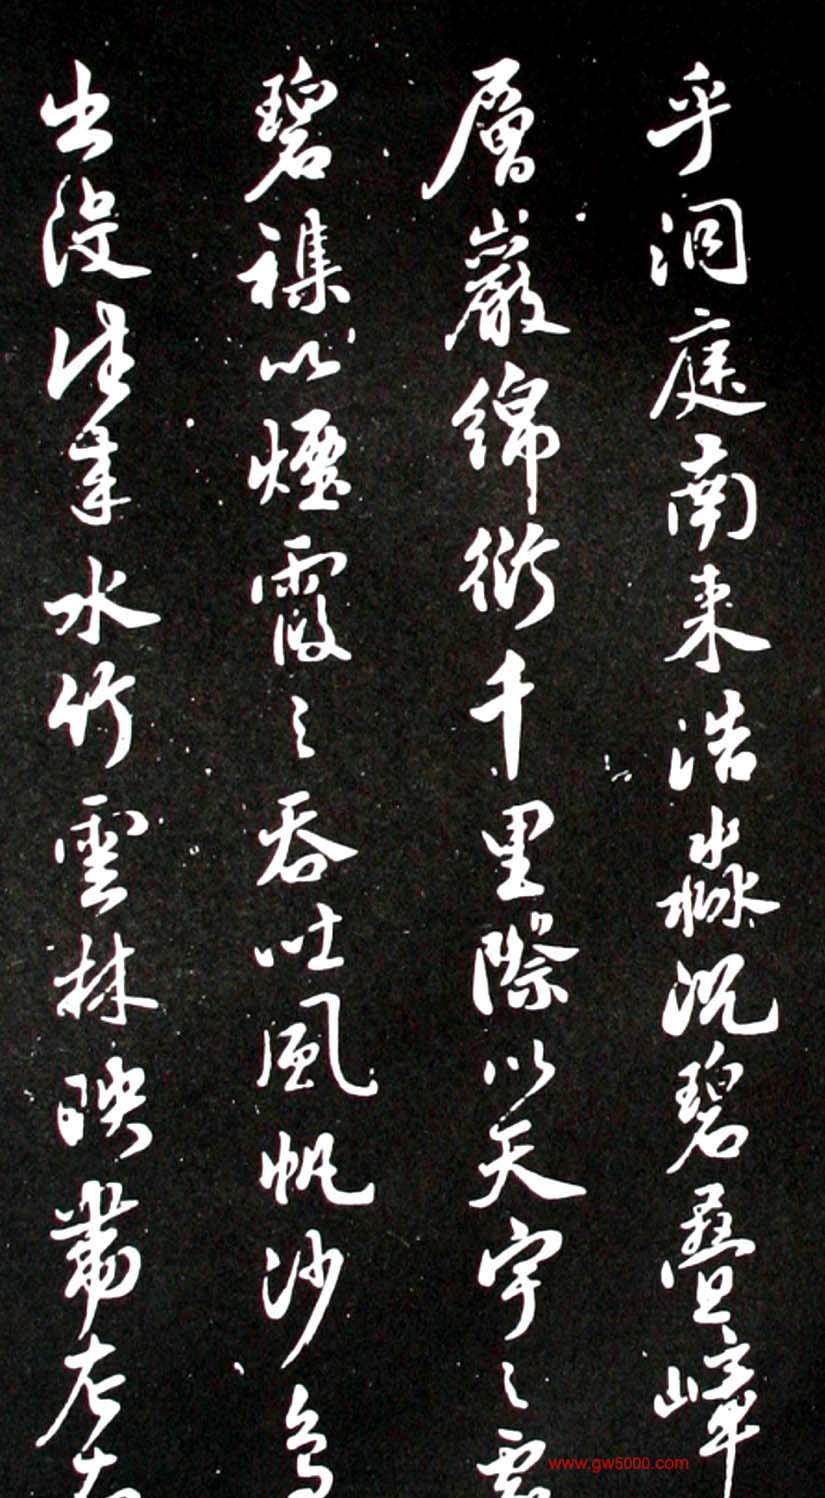 乎洞庭南来浩淼沉碧疊嶂
層巖綿衍千里際以天宇之虛
碧襍以煙霞之吞吐風帆沙鳥
出没往来水竹雲林映帶左右
www.gw5000.com